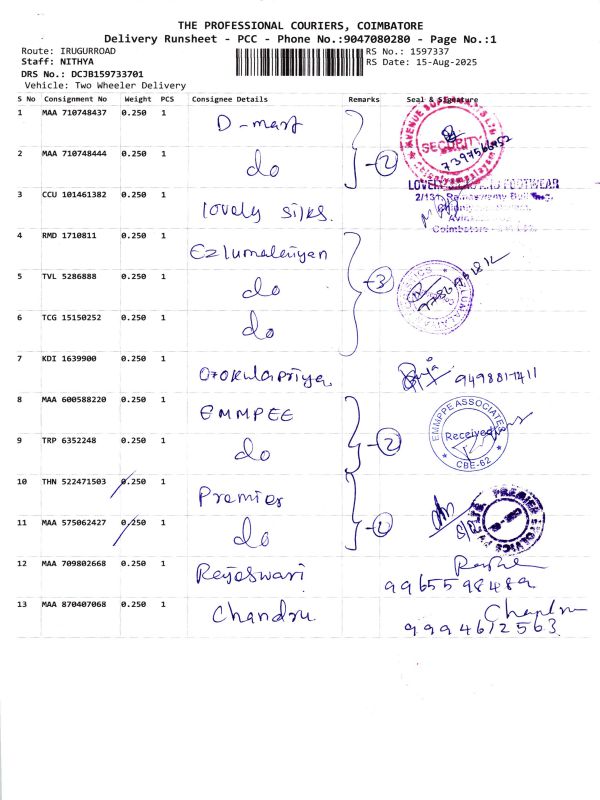 THE PROFESSIONAL COURIERS, COIMBATORE
Delivery Runsheet - PCC - Phone No.:9047080280 - Page No.:1
Route: IRUGURROAD
RS No.: 1597337
Staff: NITHYA
RS Date: 15-Aug-2025
DRS No.: DCJB159733701
Vehicle: Two Wheeler Delivery
S No Consignment No Weight PCS Consignee Details Remarks Seal & Signature
1 MAA 710748437 0.250 1 D-mart
SECURITY
2 MAA 710748444 0.250 1 do 2
LOVELY FOOTWEAR
3 CCU 101461382 0.250 1 lovely silks.
Coimbatore
4 RMD 1710811 0.250 1 Ezlumalaiyan
5 TVL 5286888 0.250 1 do 3
6 TCG 15150252 0.250 1 do
7 KDI 1639900 0.250 1
8 MAA 600588220 0.250 1 EMMPEE
EMMPPE ASSOCIATES
Received
CBE-62
9 TRP 6352248 0.250 1 do 2
10 THN 522471503 0.250 1 Premier
PREMIER
11 MAA 575062427 0.250 1 do
12 MAA 709802668 0.250 1 Rajeswari
9965598489
13 MAA 870407068 0.250 1 Chandru
9994612563